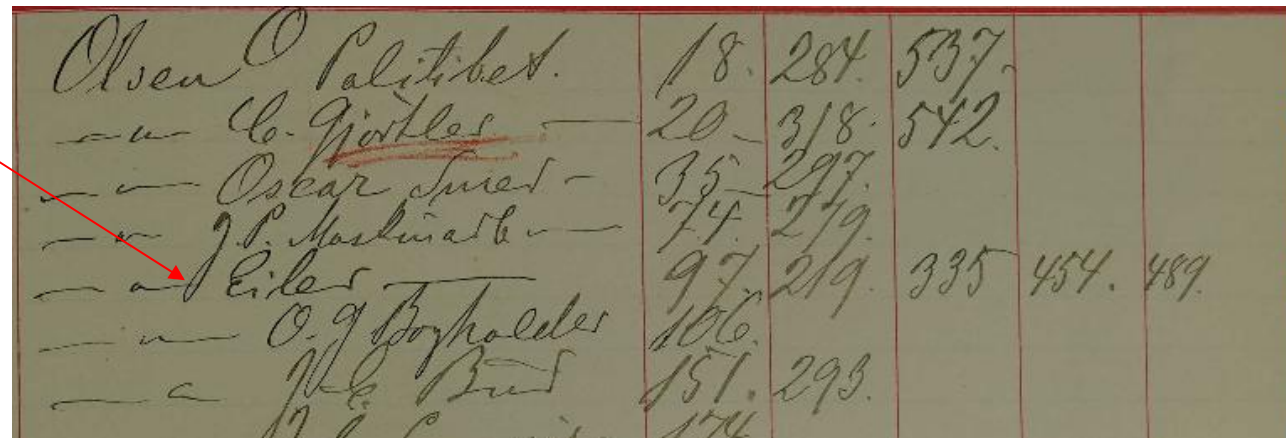 Olsen O Politibet. 18. 284. 537.
—"— C. Gjörtler — 20 318. 542.
—"— Oscar Smed - 35 297.
—"— J.P. Maskinarb — 74. 219.
—"— Eiler — 97. 219. 335 454. 489.
—"— O. J Bogholder 106.
—"— Bud 151. 293.
174